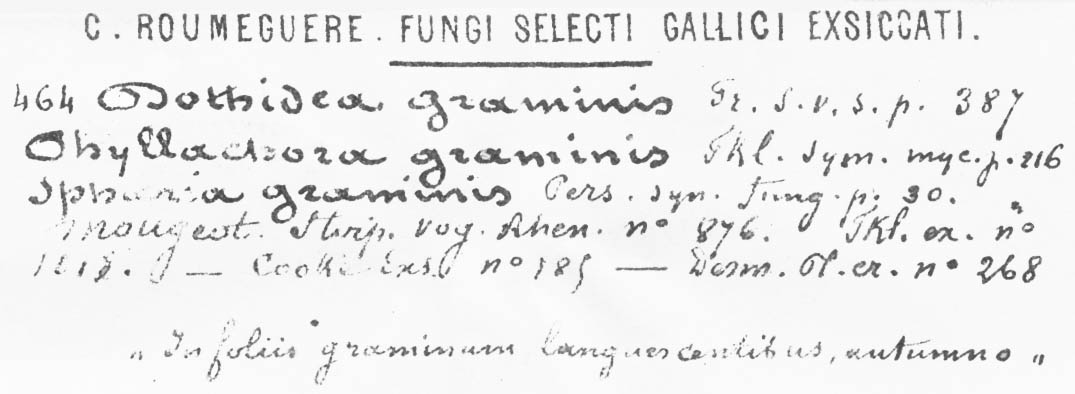 C. ROUMEGUERE. FUNGI SELECTI GALLICI EXSICCATI.
464 Dothidea graminis Fr. S. v. s. p. 387
Phyllachora graminis Fkl. Sym. myc. p. 216
Spharia graminis Pers. syn. Fung. p. 30.
Mougeot. Stirp. Vog. Rhen. nº 876. Fkl. ex. nº
— Cooke Exs. nº 185 — Desm. Pl. cr. nº 268
„ In foliis graminum languescentibus, autumno „